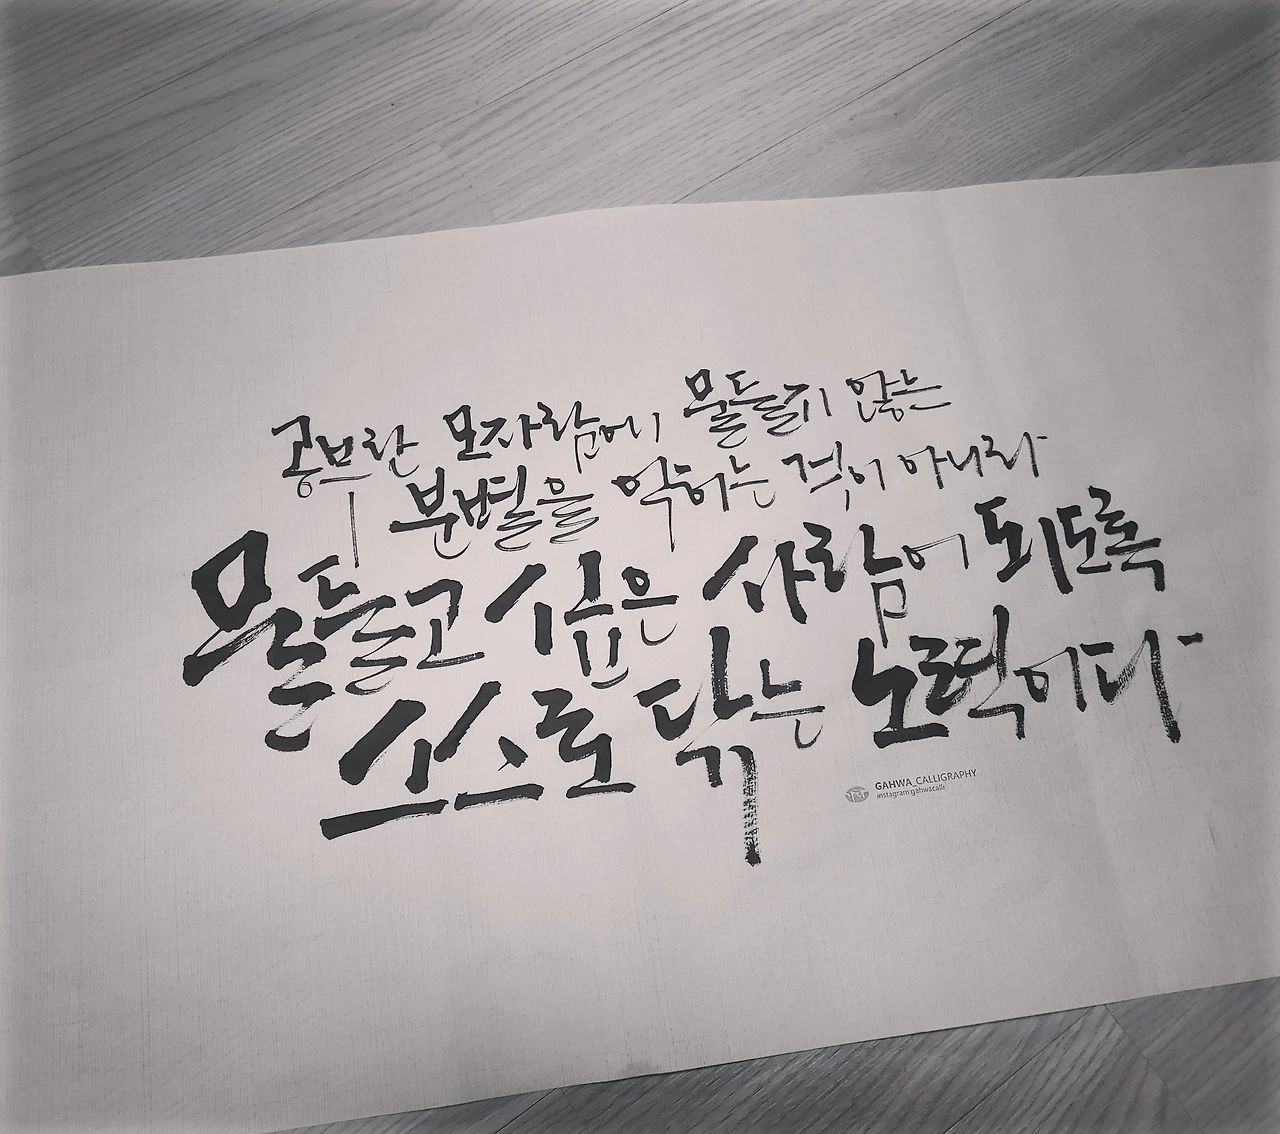 공부란 모자람에 물들지 않는
분별을 익히는 것이 아니라
물들고 싶은 사람이 되도록
스스로 닦는 노력이다
GAHWA_CALLIGRAPHY
instagram:gahwacalli